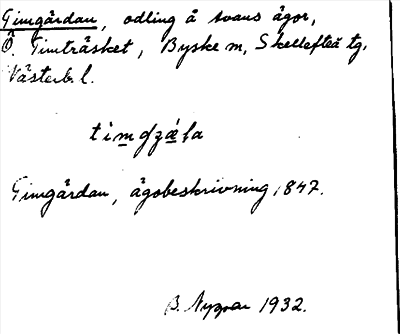 Timgärdan, odling å svans ägor,
Ö. Timträsket, Byske sn, Skellefteå tg.
Västerb. l.
Timgärdan, ägobeskrivning 1847.
B. 1932.